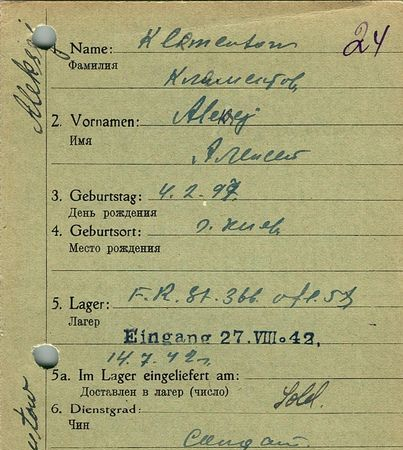 24
1. Name: Klamentow
Фамилия
Кламентов
2. Vornamen: Aleksej
Имя
Алексей
3. Geburtstag: 4.2.97
День рождения
4. Geburtsort: г. Киев
Место рождения
5. Lager: F.R. St. 366
Лагер
Eingang 27.VIII.42.
14.7.42г.
5a. Im Lager eingeliefert am:
Доставлен в лагер (число)
6. Dienstgrad: Sold.
Чин
Солдат
Aleksej